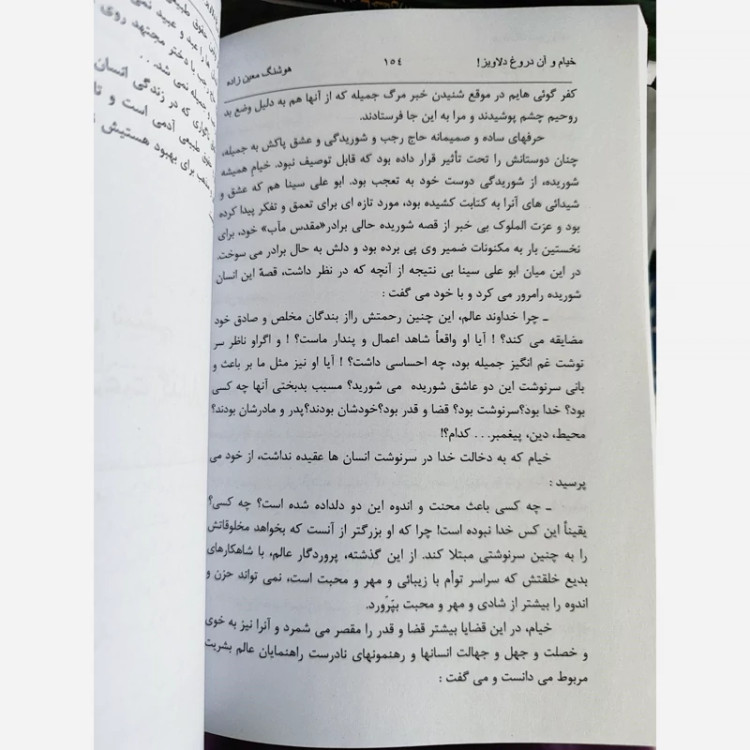 خیام و آن دروغ دلاویز! ۱۵۴ هوشنگ معین زاده
کفر گوئی هایم در موقع شنیدن خبر مرگ جمیله که از آنها هم به دلیل وضع بد
روحیم چشم پوشیدند و مرا به این جا فرستادند.
حرفهای ساده و صمیمانه حاج رجب و شوریدگی و عشق پاکش به جمیله،
چنان دوستانش را تحت تأثیر قرار داده بود که قابل توصیف نبود. خیام همیشه
شوریده، از شوریدگی دوست خود به تعجب بود. ابو علی سینا هم که عشق و
شیدائی های آنرا به کتابت کشیده بود، مورد تازه ای برای تعمق و تفکر پیدا کرده
بود و عزت الملوک بی خبر از قصه شوریده حالی برادر«مقدس مآب» خود، برای
نخستین بار به مکنونات ضمیر وی پی برده بود و دلش به حال برادر می سوخت.
در این میان ابو علی سینا بی نتیجه از آنچه که در نظر داشت، قصهٔ این انسان
شوریده رامرور می کرد و با خود می گفت :
ـ چرا خداوند عالم، این چنین رحمتش رااز بندگان مخلص و صادق خود
مضایقه می کند؟ ! آیا او واقعاً شاهد اعمال و پندار ماست؟ ! و اگراو ناظر سر
نوشت غم انگیز جمیله بود، چه احساسی داشت؟ ! آیا او نیز مثل ما بر باعث و
بانی سرنوشت این دو عاشق شوریده می شورید؟ مسبب بدبختی آنها چه کسی
بود؟ خدا بود؟سرنوشت بود؟ قضا و قدر بود؟خودشان بودند؟پدر و مادرشان بودند؟
محیط، دین، پیغمبر. . . کدام؟!
خیام که به دخالت خدا در سرنوشت انسان ها عقیده نداشت، از خود می
پرسید :
ـ چه کسی باعث محنت و اندوه این دو دلداده شده است؟ چه کسی؟
یقیناً این کس خدا نبوده است! چرا که او بزرگتر از آنست که بخواهد مخلوقاتش
را به چنین سرنوشتی مبتلا کند. از این گذشته، پروردگار عالم، با شاهکارهای
بدیع خلقتش که سراسر توأم با زیبائی و مهر و محبت است، نمی تواند حزن و
اندوه را بیشتر از شادی و مهر و محبت بپّرورد.
خیام، در این قضایا بیشتر قضا و قدر را مقصر می شمرد و آنرا نیز به خوی
و خصلت و جهل و جهالت انسانها و رهنمونهای نادرست راهنمایان عالم بشریت
مربوط می دانست و می گفت :